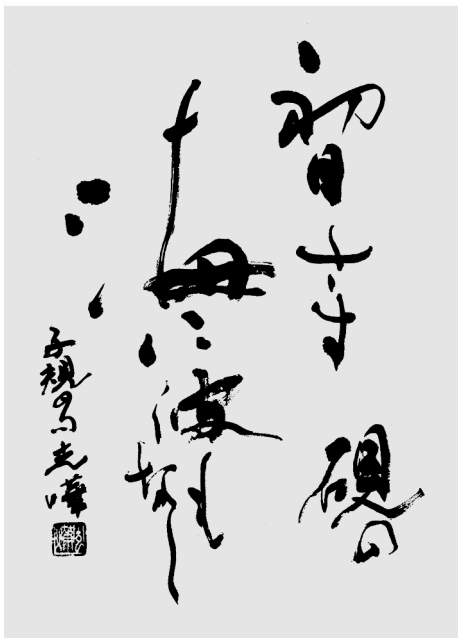 初日さす硯の
海に波もなし
子規の句